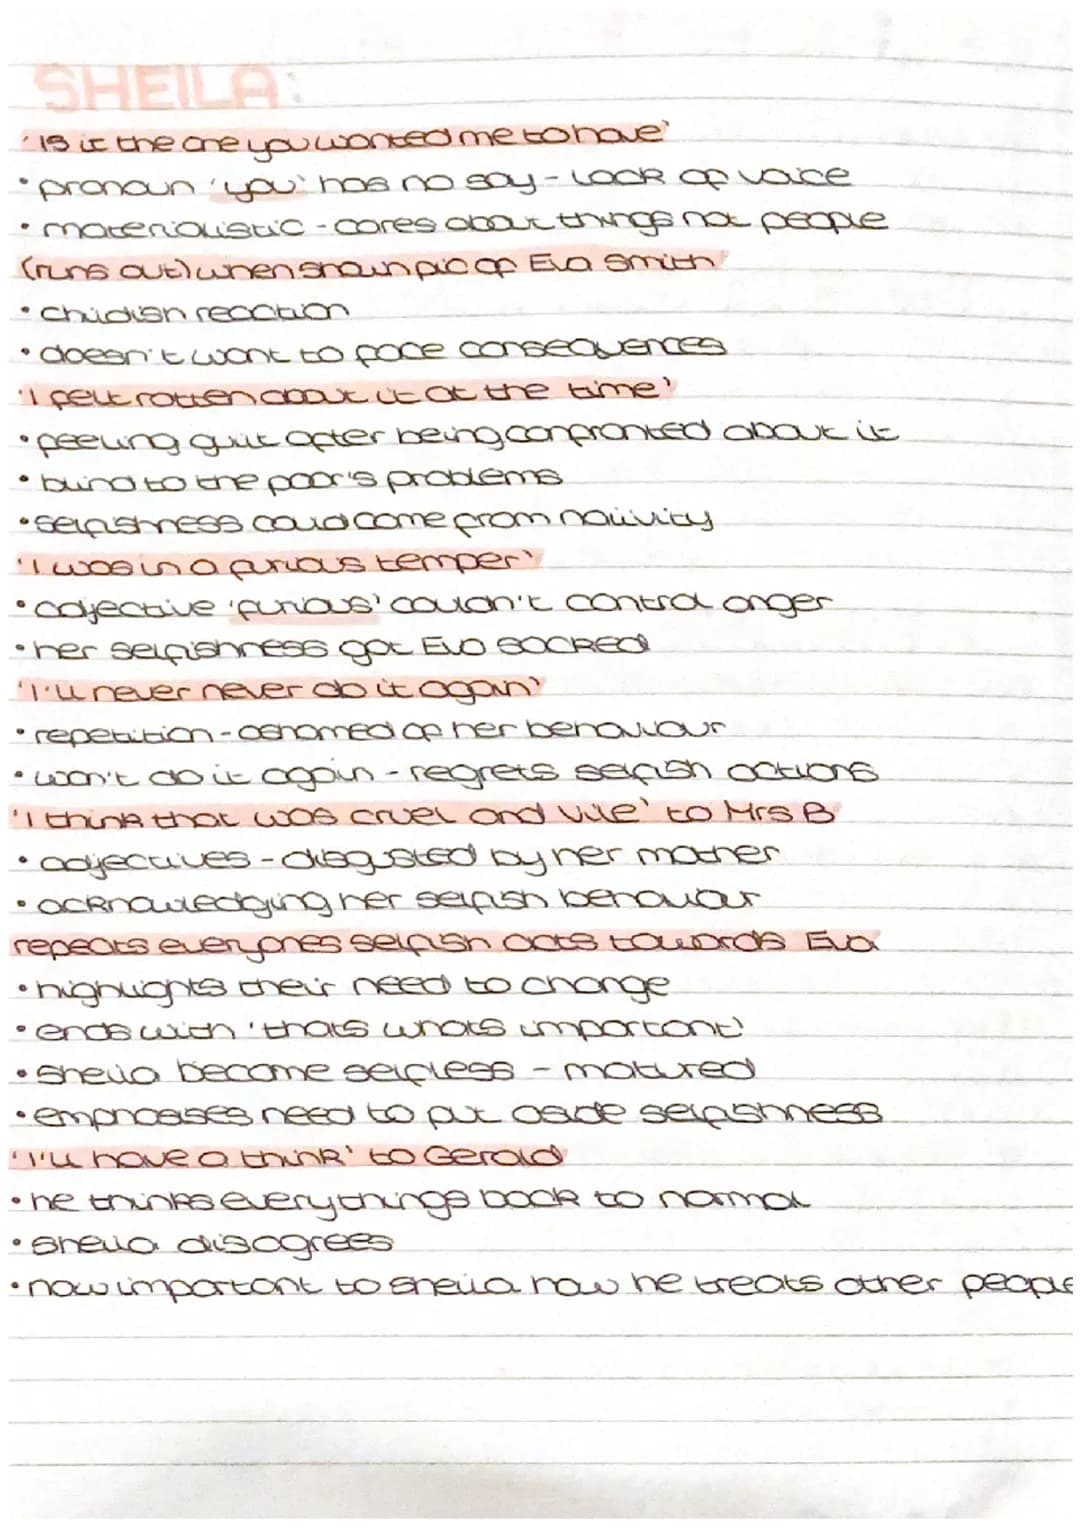 SHEILA:
'Is it the one you wanted me to have'
• pronoun 'you' has no say - lack of voice
• materialistic - cares about things not people
(runs out) when shown pic of Eva Smith
• childish reaction
• doesn't want to face consequences
'I felt rotten about it at the time'
• feeling guilt after being confronted about it
• blind to the poor's problems
• selfishness could come from naiivity
'I was in a furious temper'
• adjective 'furious' couldn't control anger
• her selfishness got Eva sacked
'I'll never never do it again'
• repetition - ashamed of her behaviour
• won't do it again - regrets selfish actions
'I think that was cruel and vile' to Mrs B
• adjectives - disgusted by her mother
• acknowledging her selfish behaviour
repeats everyones selfish acts towards Eva
• highlights their need to change
• ends with 'thats whats important'
• Sheila become selfless - matured
• emphasises need to put aside selfishness
'I'll have a think' to Gerald
• he thinks everythings back to normal
• Sheila disagrees
• now important to Sheila how he treats other people